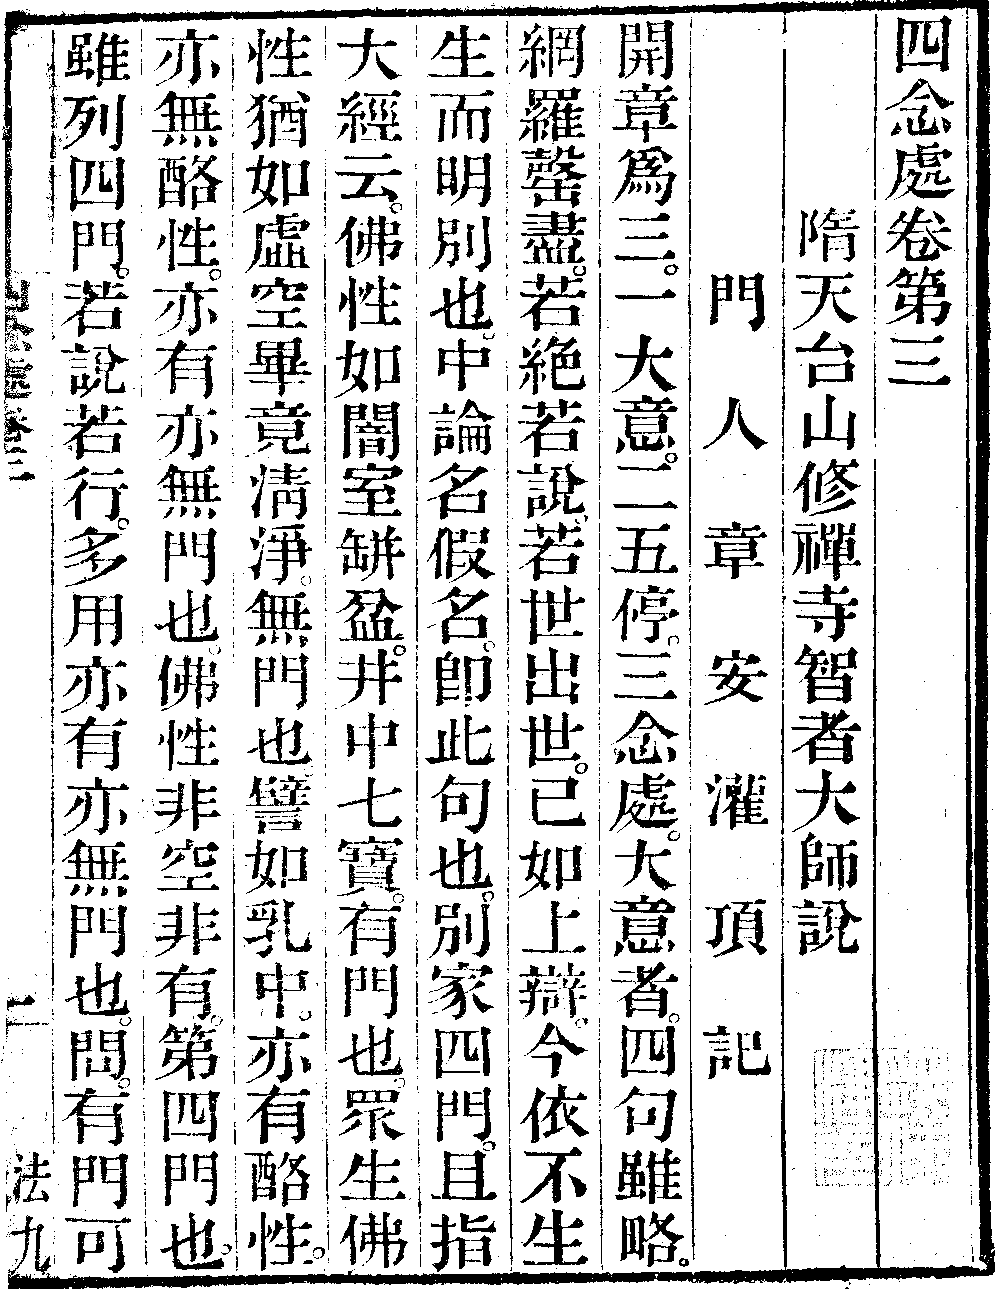 四念處卷第三
隋天台山修禪寺智者大師說
門人章安灌頂記
開章爲三。一大意。二五停。三念處。大意者。四句雖略。
網羅罄盡。若絶若說。若世出世。已如上辯。今依不生
生而明別也。中論名假名。卽此句也。別家四門。且指
大經云。佛性如闇室缾盆。井中七寶。有門也。眾生佛
性猶如虛空畢竟淸淨。無門也。譬如乳中。亦有酪性。
亦無酪性。亦有亦無門也。佛性非空非有。第四門也。
雖列四門。若說若行。多用亦有亦無門也。問。有門可
四念處卷三
二
法九